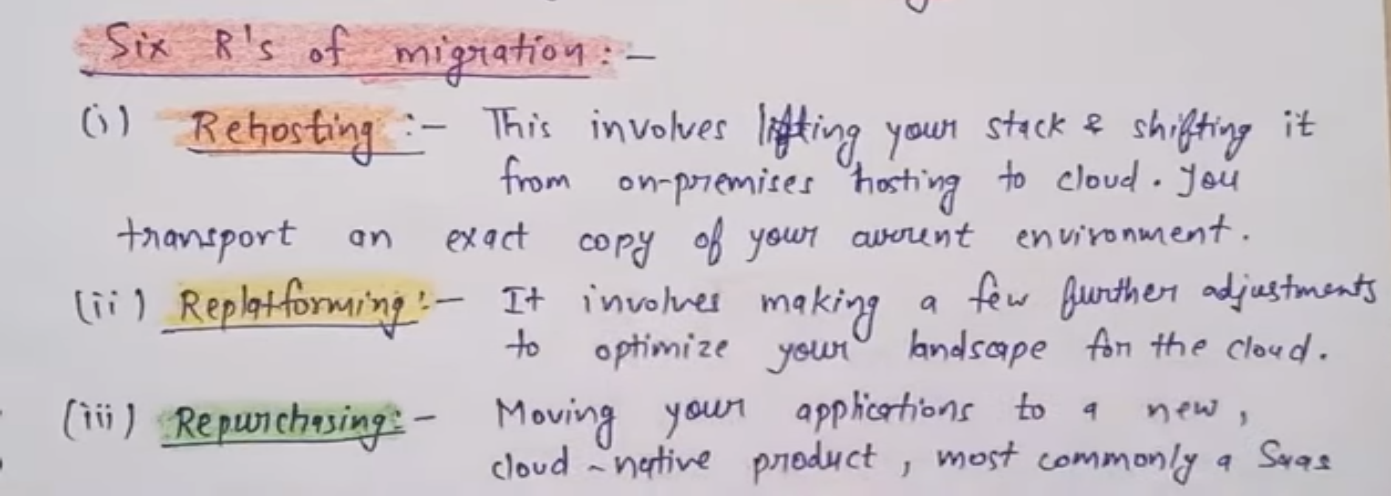 Six R's of migration :-
(i) Rehosting :- This involves lifting your stack & shifting it
from on-premises hosting to cloud. You
transport an exact copy of your current environment.
(ii) Replatforming :- It involves making a few further adjustments
to optimize your landscape for the cloud.
(iii) Repurchasing :- Moving your applications to a new,
cloud-native product, most commonly a Saas